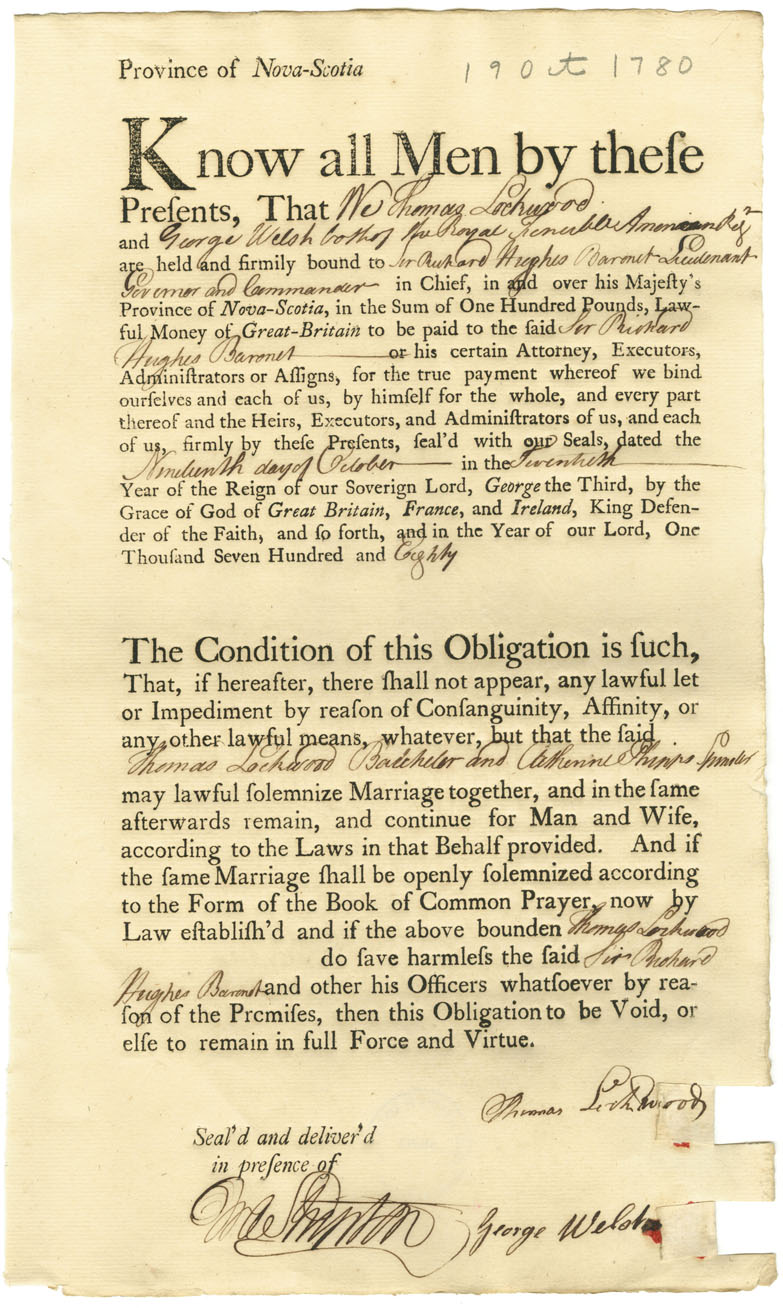 Province of Nova-Scotia
19 Oct 1780
Know all Men by theſe
Preſents, That We Thomas Lockwood
and George Welsh both of the Royal Fencible American Regt
are held and firmily bound to Sir Richard Hughes Baronet Lieutenant
Governor and Commander in Chief, in and over his Majeſty's
Province of Nova-Scotia, in the Sum of One Hundred Pounds, Law-
ful Money of Great-Britain to be paid to the ſaid Sir Richard
Hughes Baronet or his certain Attorney, Executors,
Adminiſtrators or Aſſigns, for the true payment whereof we bind
ourſelves and each of us, by himſelf for the whole, and every part
thereof and the Heirs, Executors, and Adminiſtrators of us, and each
of us, firmly by theſe Preſents, ſeal'd with our Seals, dated the
Nineteenth day of October in the Twentieth
Year of the Reign of our Soverign Lord, George the Third, by the
Grace of God of Great Britain, France, and Ireland, King Defen-
der of the Faith, and ſo forth, and in the Year of our Lord, One
Thouſand Seven Hundred and Eighty
The Condition of this Obligation is ſuch,
That, if hereafter, there ſhall not appear, any lawful let
or Impediment by reaſon of Conſanguinity, Affinity, or
any other lawful means, whatever, but that the ſaid
Thomas Lockwood Batcheler and Catherine Phipps Spinster
may lawful ſolemnize Marriage together, and in the ſame
afterwards remain, and continue for Man and Wife,
according to the Laws in that Behalf provided. And if
the ſame Marriage ſhall be openly ſolemnized according
to the Form of the Book of Common Prayer, now by
Law eſtabliſh'd and if the above bounden Thomas Lockwood
do ſave harmleſs the ſaid Sir Richard
Hughes Baronet and other his Officers whatſoever by rea-
ſon of the Premiſes, then this Obligation to be Void, or
elſe to remain in full Force and Virtue.
Thomas Lockwood
Seal'd and deliver'd
in preſence of
George Welsh